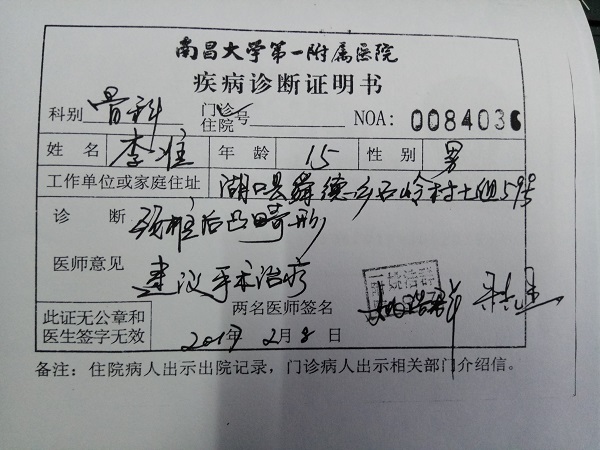 南昌大学第一附属医院
疾病诊断证明书
科别 骨科 门诊 住院 号 NOA: 0084036
姓名 李准 年龄 15 性别 男
工作单位或家庭住址 湖口县舜德乡石岭村七组59号
诊断 颈椎后凸畸形
医师意见 建议手术治疗
此证无公章和 两名医师签名
医生签字无效 2017年2月8日
备注：住院病人出示出院记录，门诊病人出示相关部门介绍信。